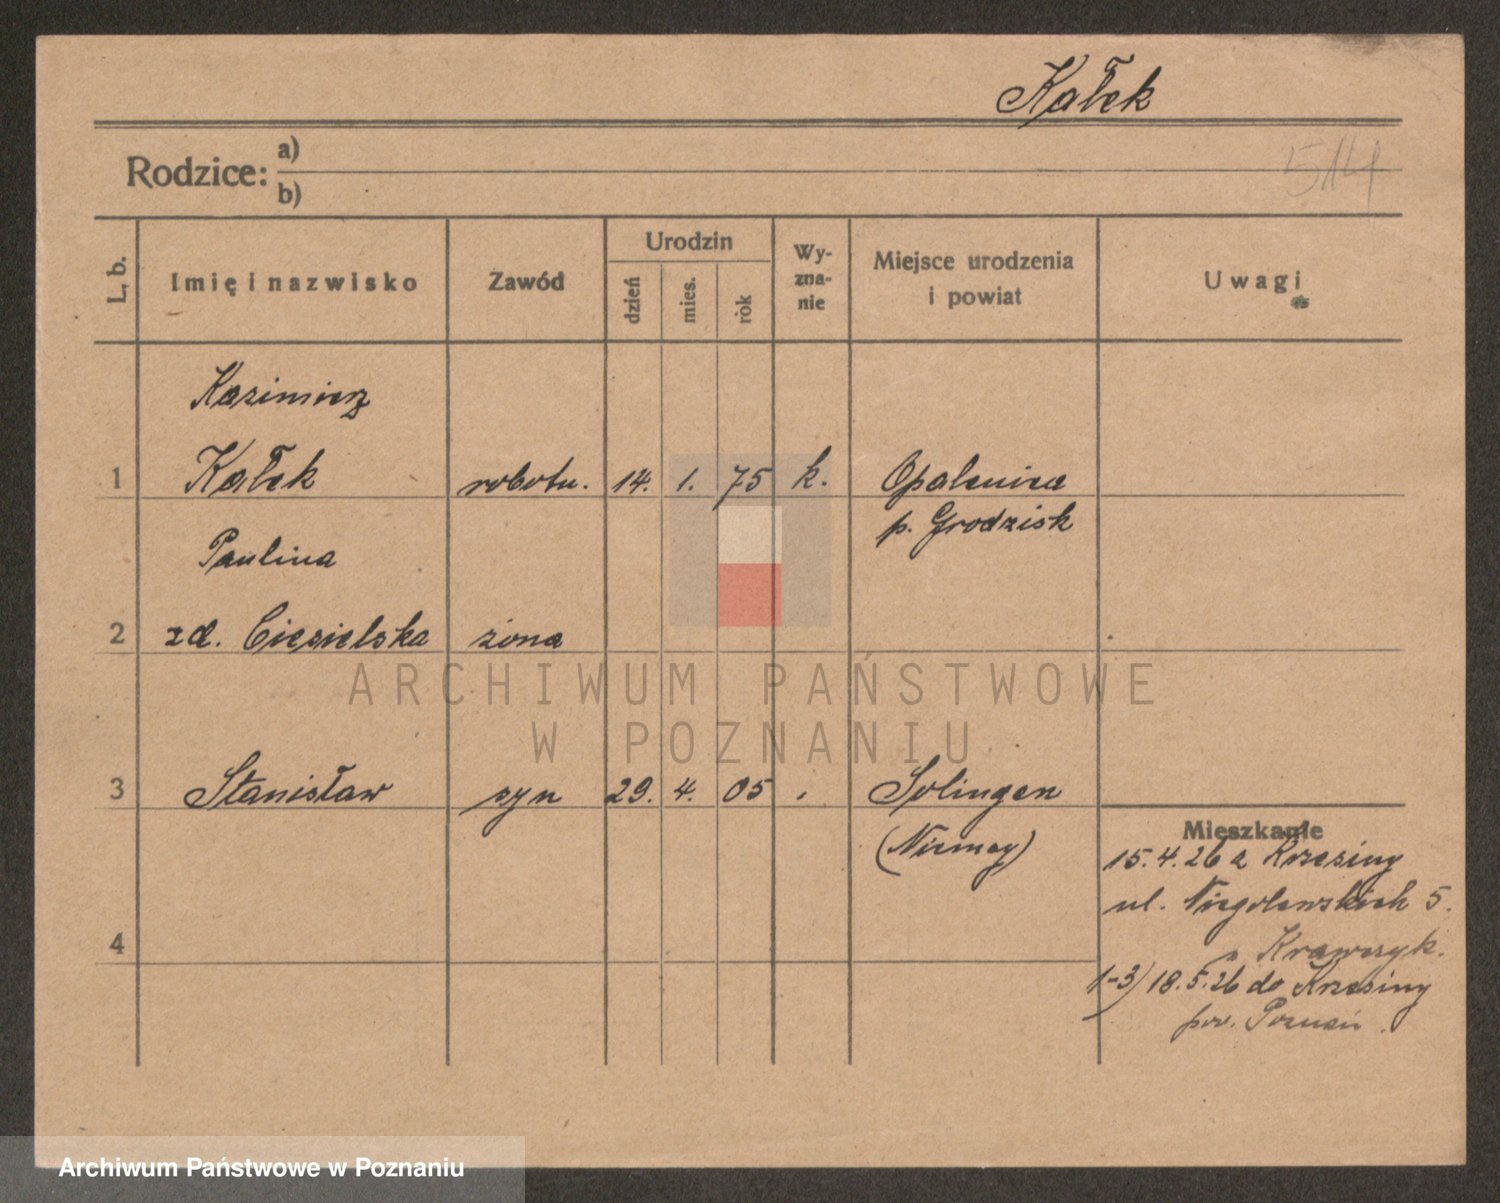 Kałek
Rodzice: a)
b)
514
L. b.
Imię i nazwisko
Zawód
Urodzin
dzień
mies.
rok
Wy-
zna-
nie
Miejsce urodzenia
i powiat
Uwagi
Kazimierz
1 Kałek robotn. 14. 1. 75 k. Opalenica
p. Grodzisk
Paulina
2 zd. Ciesielska żona
3 Stanisław syn 29. 4. 05 Solingen
(Niemcy)
4
Mieszkanie
15.4.26 z Krzesiny
ul. Niegolewskich 5.
Krawczyk.
1-3) 18.5.26 do Krzesiny
pow. Poznań.
ARCHIWUM PAŃSTWOWE
W POZNANIU
Archiwum Państwowe w Poznaniu